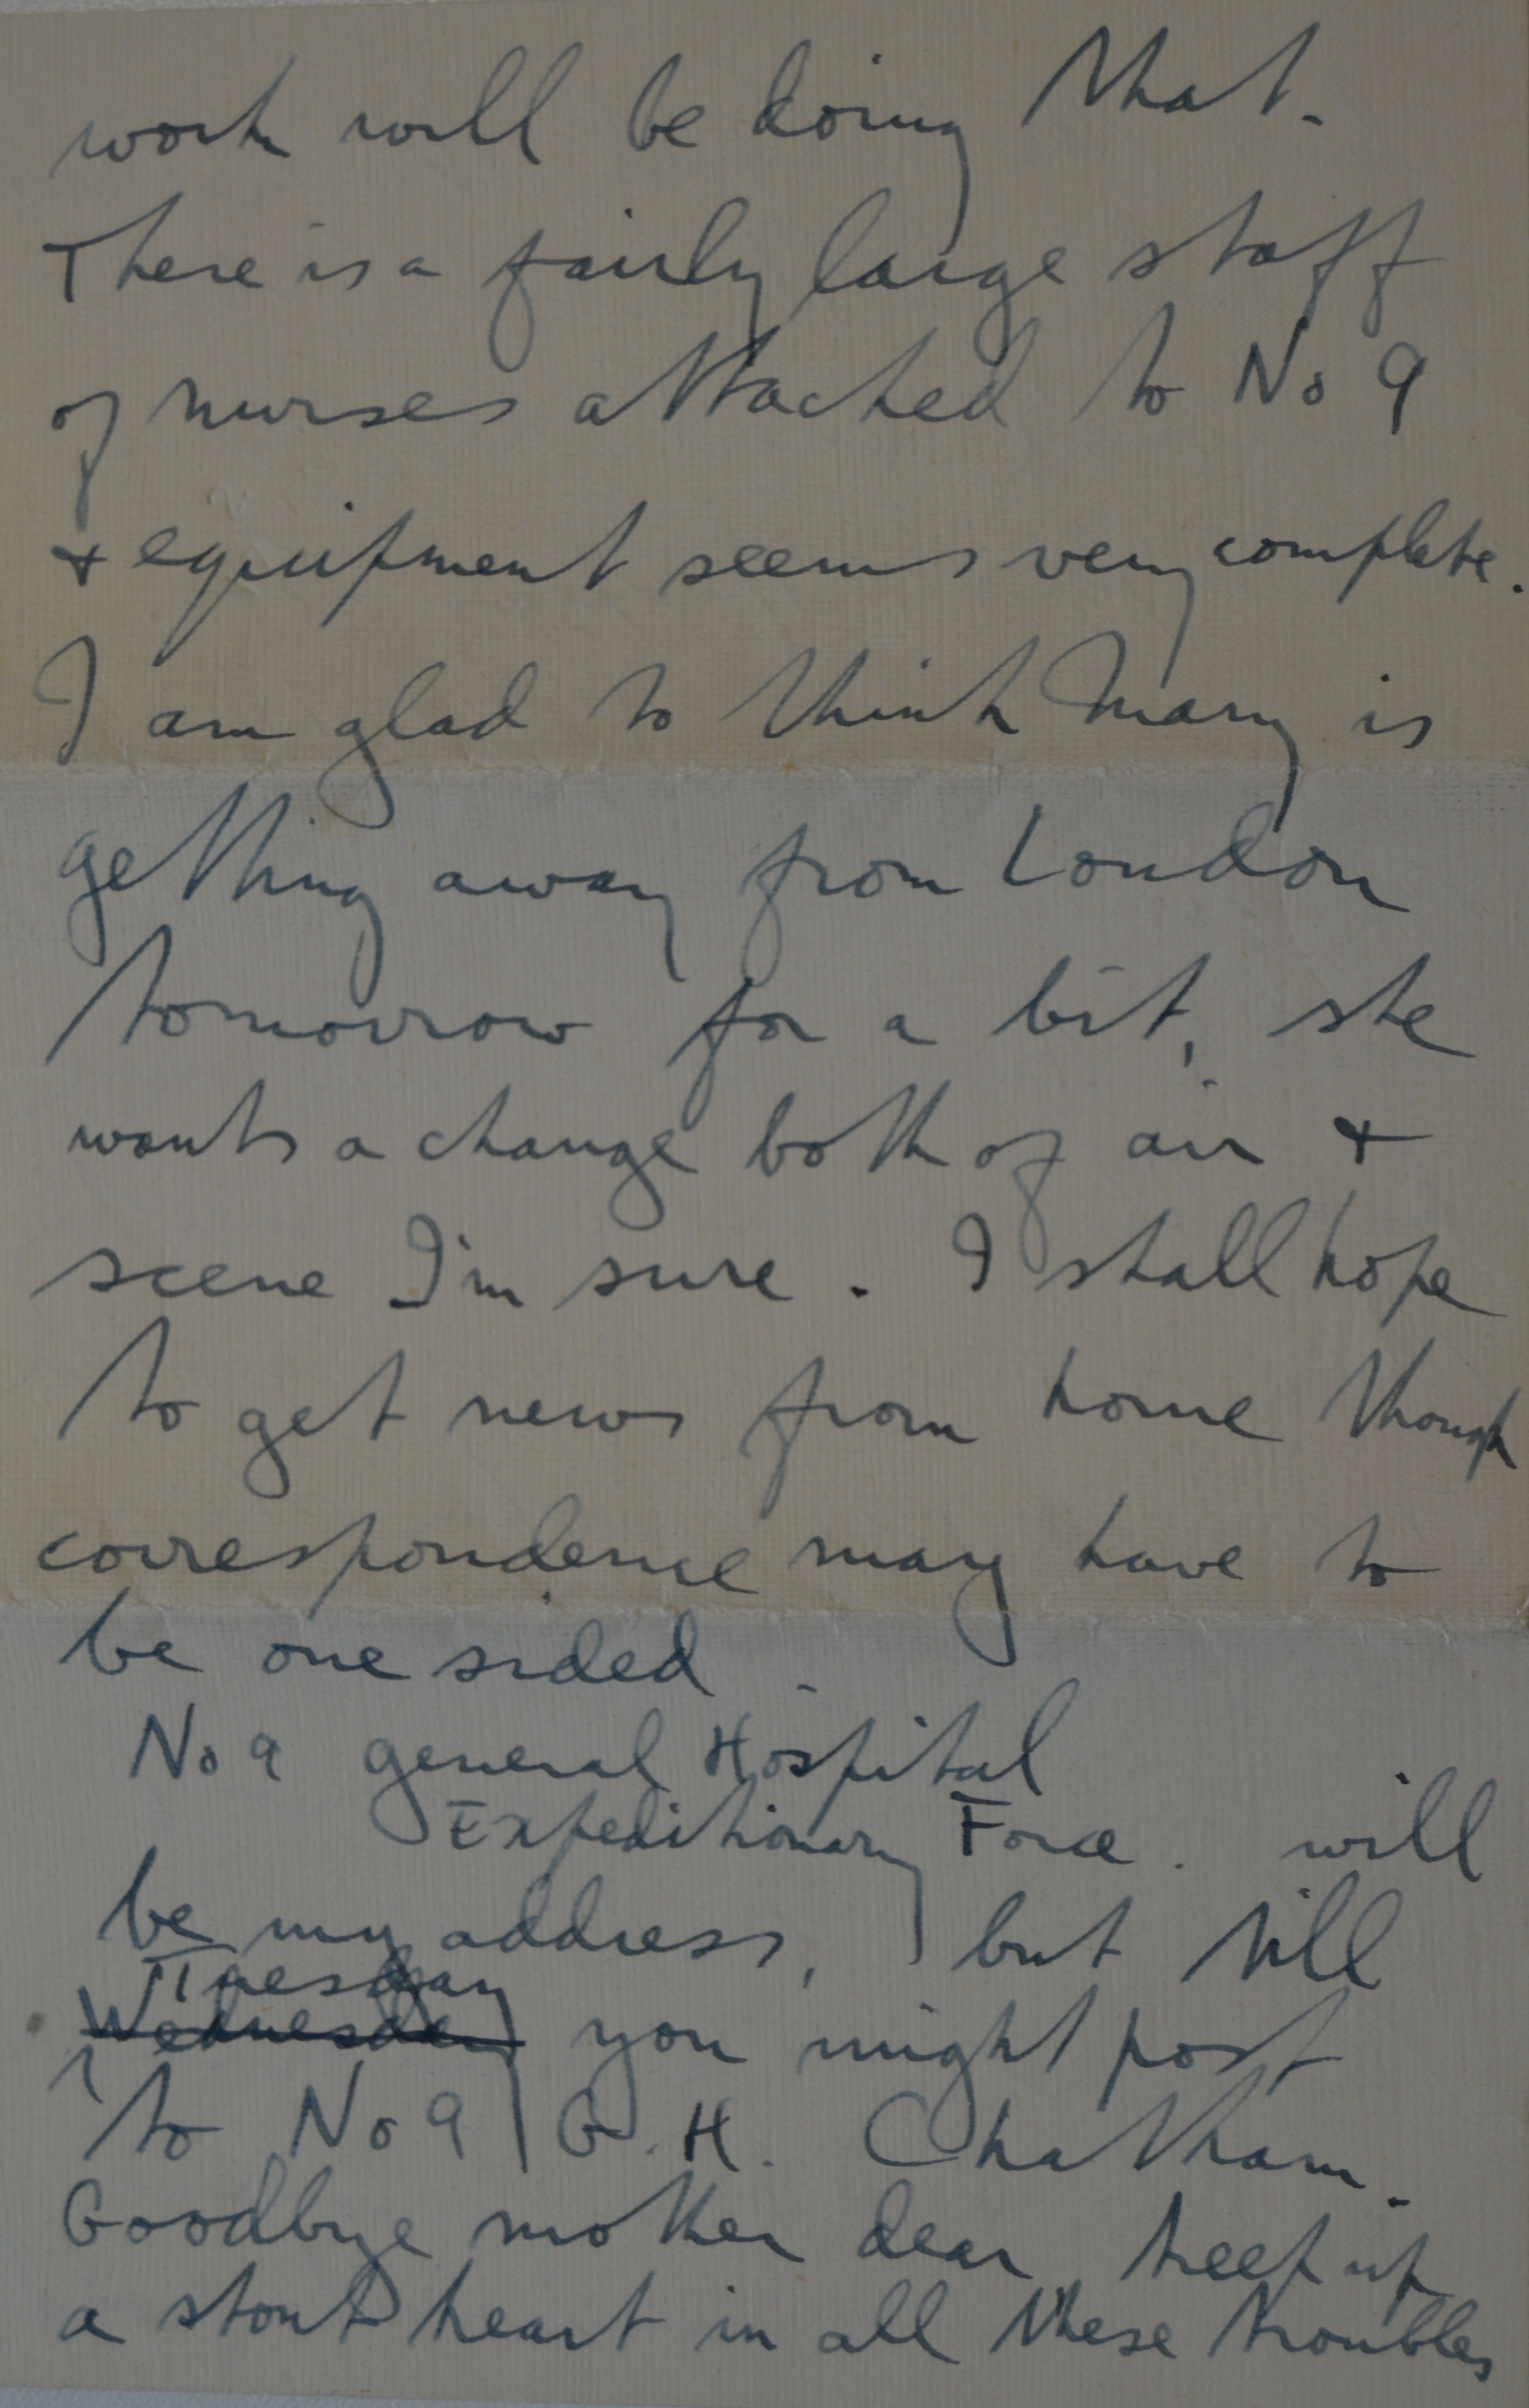 work will be doing that.
There is a fairly large staff
of nurses attached to No 9
+ equipment seems very complete.
I am glad to think Mary is
getting away from London
tomorrow for a bit, she
wants a change both of air +
scene I'm sure. I shall hope
to get news from home though
correspondence may have to
be one sided.
No 9 general Hospital
Expeditionary Force. will
be my address, but till
Tuesday
Wednesday you might post
to No 9 G.H. Chatham.
Goodbye mother dear keep up
a stout heart in all these troubles